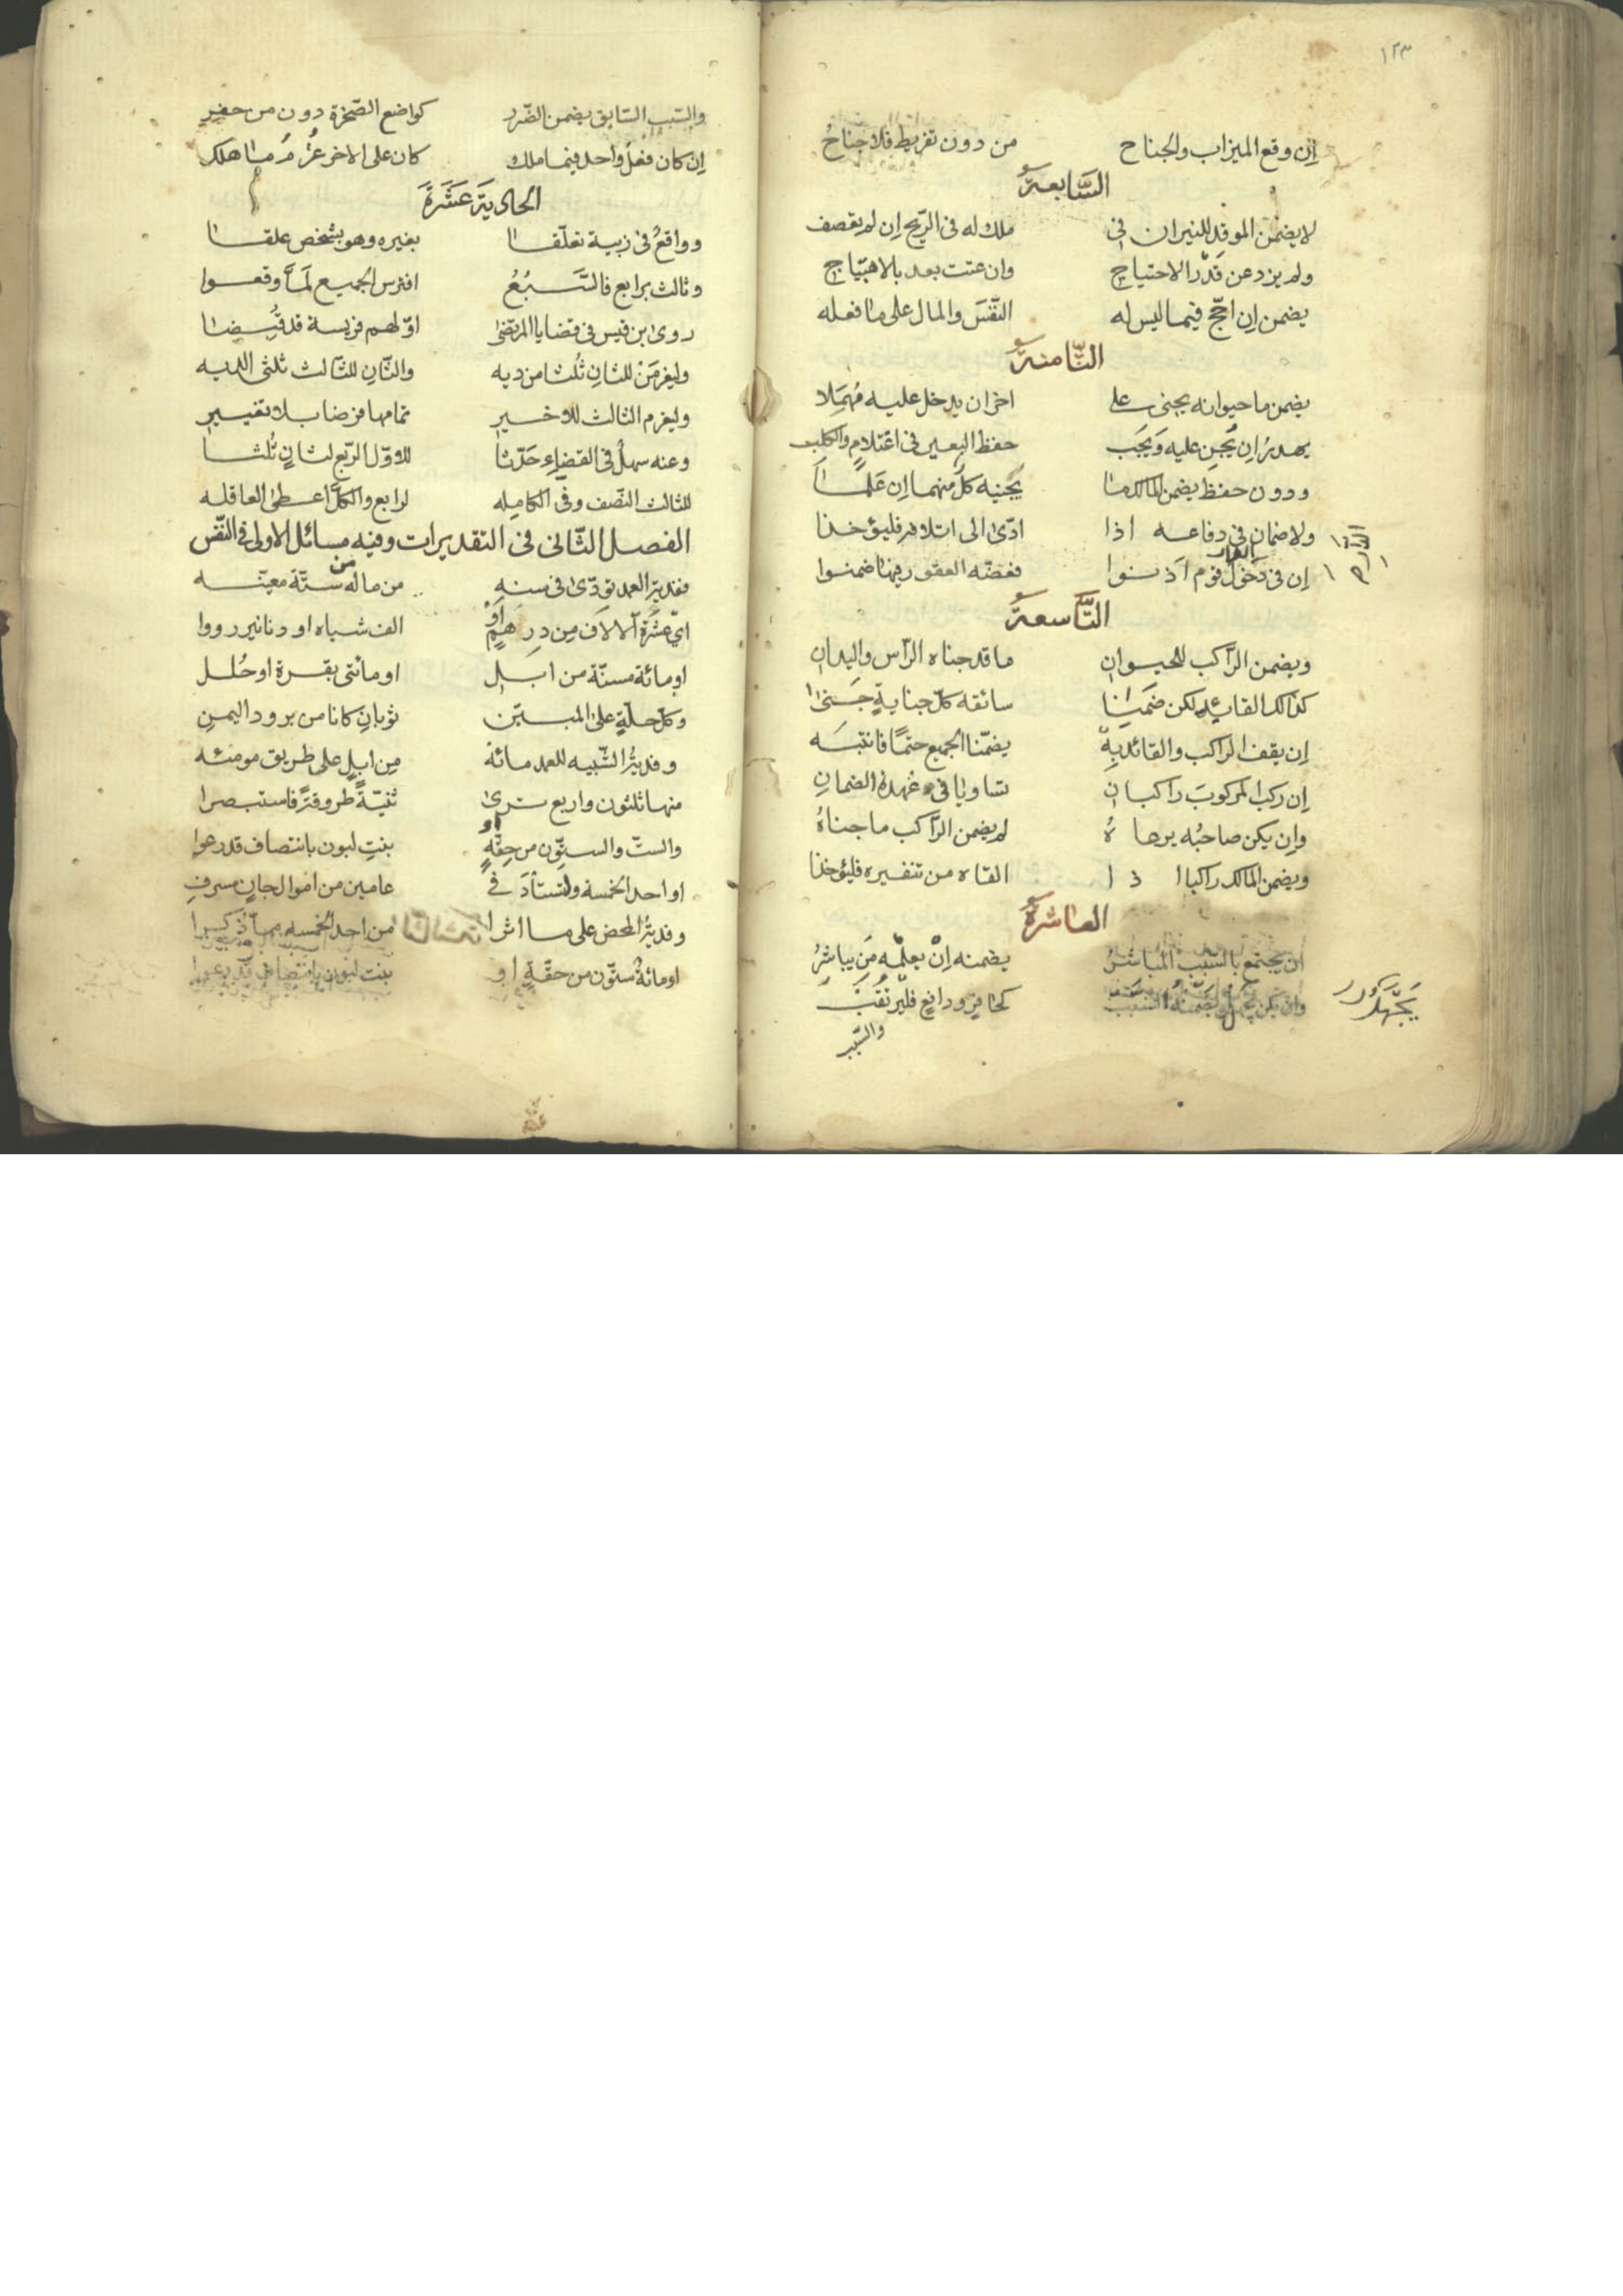 ١٢٣
إن وقع الميزاب والجناح من دون تفريط فلا جناحُ
السَّابعة
لا يضمن الموقد للنيران في ملك له في الرّيح إن لم يقصف
ولم يزد عن قَدْر الاحتياج وان عتت بعد بالاهتياج
يضمن إن اجّج فيما ليس له النّفسَ والمال على ما فعله
الثّامنة
يضمن ما حيوانه يجنى على اخر ان يدخل عليه مُهمَلا
يهدرُ ان يُجنِ عليه وَيَجَب حفظ البعير في اغتلامٍ والكلب
ودون حفظ يضمن المالك ما يَجنيه كلٌّ منهما إن عَلِما
ولا ضمان في دفاعه اذا ادّى الى اتلافه فليؤخذا
إن في دخول قوم آذنوا فعضّه العقور فيها ضمنوا
التَّاسعة
ويضمن الرّاكب للحيوان ما قد جناه الرّأس واليدان
كذلك القائد لكن ضَمِنا سائقه كلّ جنايةٍ جَنى
إن يقف الراكب والقائد بِهْ يضمّنا الجميع حتمًا فانتبَه
إن ركب المركوبَ راكبان تساويا في عُهدة الضمانِ
وإن يكن صاحبُه يرعاهُ لم يضمن الرّاكب ما جناهُ
ويضمن المالك راكبا اذا القاه من تنفيره فليؤخذا
العاشرة
ان يجتمع بالسّبب المُباشرُ يضمنه إنْ يعلمْه مَن يباشِرُ
وان يكن يجهل السبب كحافرٍ ودافعٍ فليرتقب
والسّبب
والسّبب السّابق يضمن الضّرر كواضع الصّخرة دون من حفر
إن كان فعلُ واحد فيما ملك كان على الاخر غُرمُ ما هلك
الحادية عَشَرَةَ
وواقعٌ في زبية تعلّقا بغيره وهو بشخص علقا
وثالث برابع فالسَّبُعُ افترس الجميع لمّا وقعوا
روى ابن قيس في قضايا المرتضى اوّلهم فريسة قد قُيِّضا
وليغرمَنْ للثانِ ثُلثا من ديه والثّانِ للثّالث ثلثى الديه
وليغرم الثالث للاخير تمامها فرضا بلا تغيير
وعنه سهلٌ في القضاءِ حَدّثا للاوّل الرّبع لثانٍ ثُلثا
للثالث النّصف وفي الكامله لرابع والكلَّ اعطى العاقله
الفصل الثّانى في التقديرات وفيه مسائل الاولى في النّفس
ففديةُ العمد تودّى في سنه من ماله من ستّة معيّنه
اىْ عشرة آلالاف مِن درهمٍ أوْ الف شياه او دنانير رووا
او مائة مسنّة من ابل او مائتى بقرة او حُلل
وكلّ حلّةٍ على المبيّن ثوبانِ كانا من برود اليمنِ
وفديةُ الشّبيه للعمد مائة مِن ابلٍ على طريق مومئه
منها ثلثون واربع ترى ثنيّةً طروقةً فاستبصرا
والستّ والستّون من حِقّةٍ او بنتِ لبون بانتصاف قد رعوا
او احد الخمسة ولتستأدَ في عامين من اموال جانٍ مسرفِ
وفديةُ المحض على ما اشرا من احد الخمسه ممّا ذكرا
او مائةُ ستّون من حقّةٍ او بنت لبون